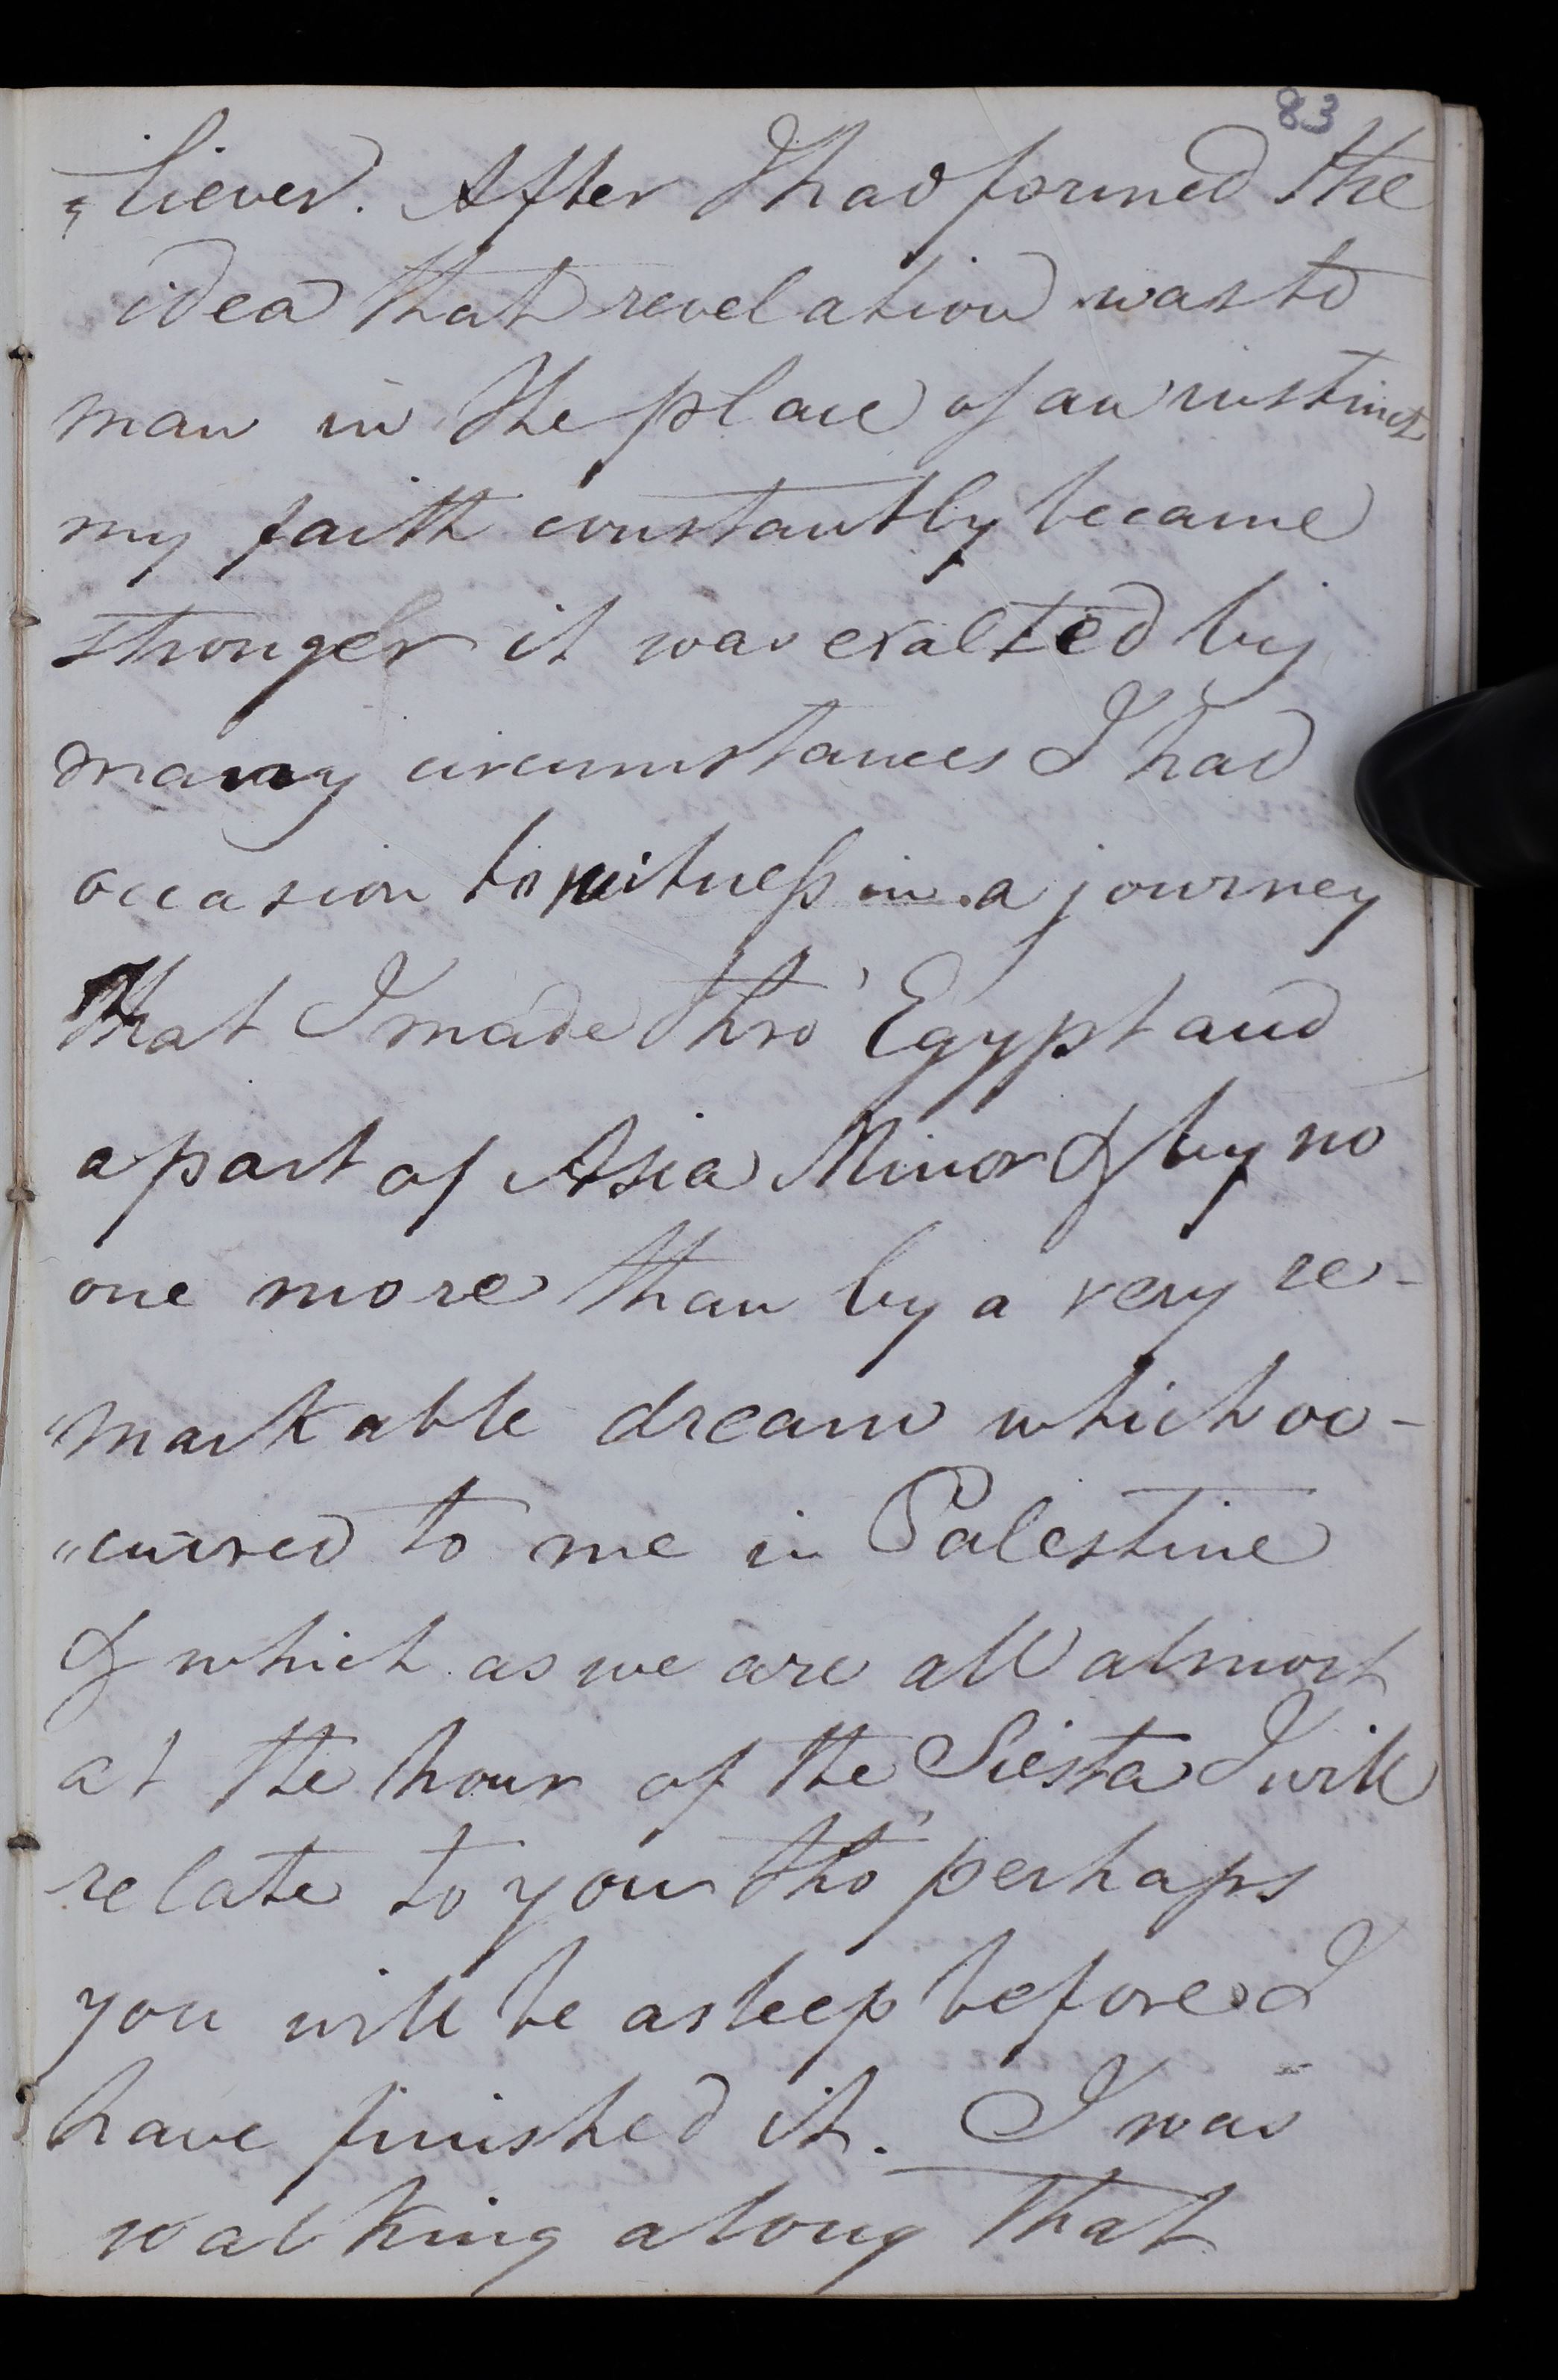 83
=liever. After I had formed the
idea that revelation was to
man in the place of an instinct
my faith constantly became
stronger it was exalted by
many circumstances I had
occasion to witness in a journey
that I made thro' Egypt and
a part of Asia Minor & by no
one more than by a very re-
"markable dream which oc-
"curred to me in Palestine
& which as we are all almost
at the hour of the Siesta I will
relate to you tho' perhaps
you will be asleep before I
have finished it. I was
walking along that